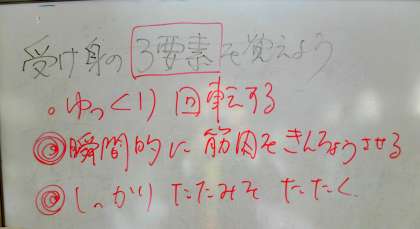 受け身の3要素を覚えよう
○ゆっくり回転する
◎瞬間的に筋肉をきんちょうさせる
◎しっかりたたみをたたく